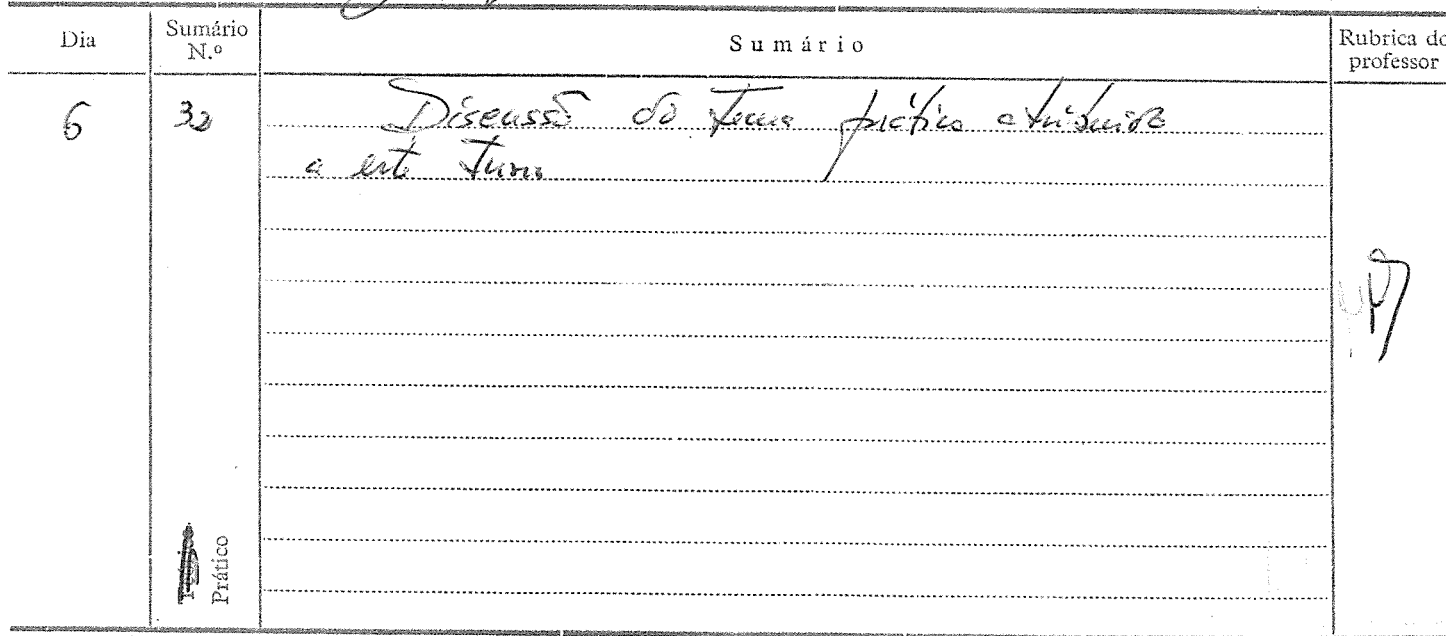 Dia
Sumário N.º
Sumário
Rubrica do professor
6
32
Discussão do tema prático atribuido
a este turno
Prático